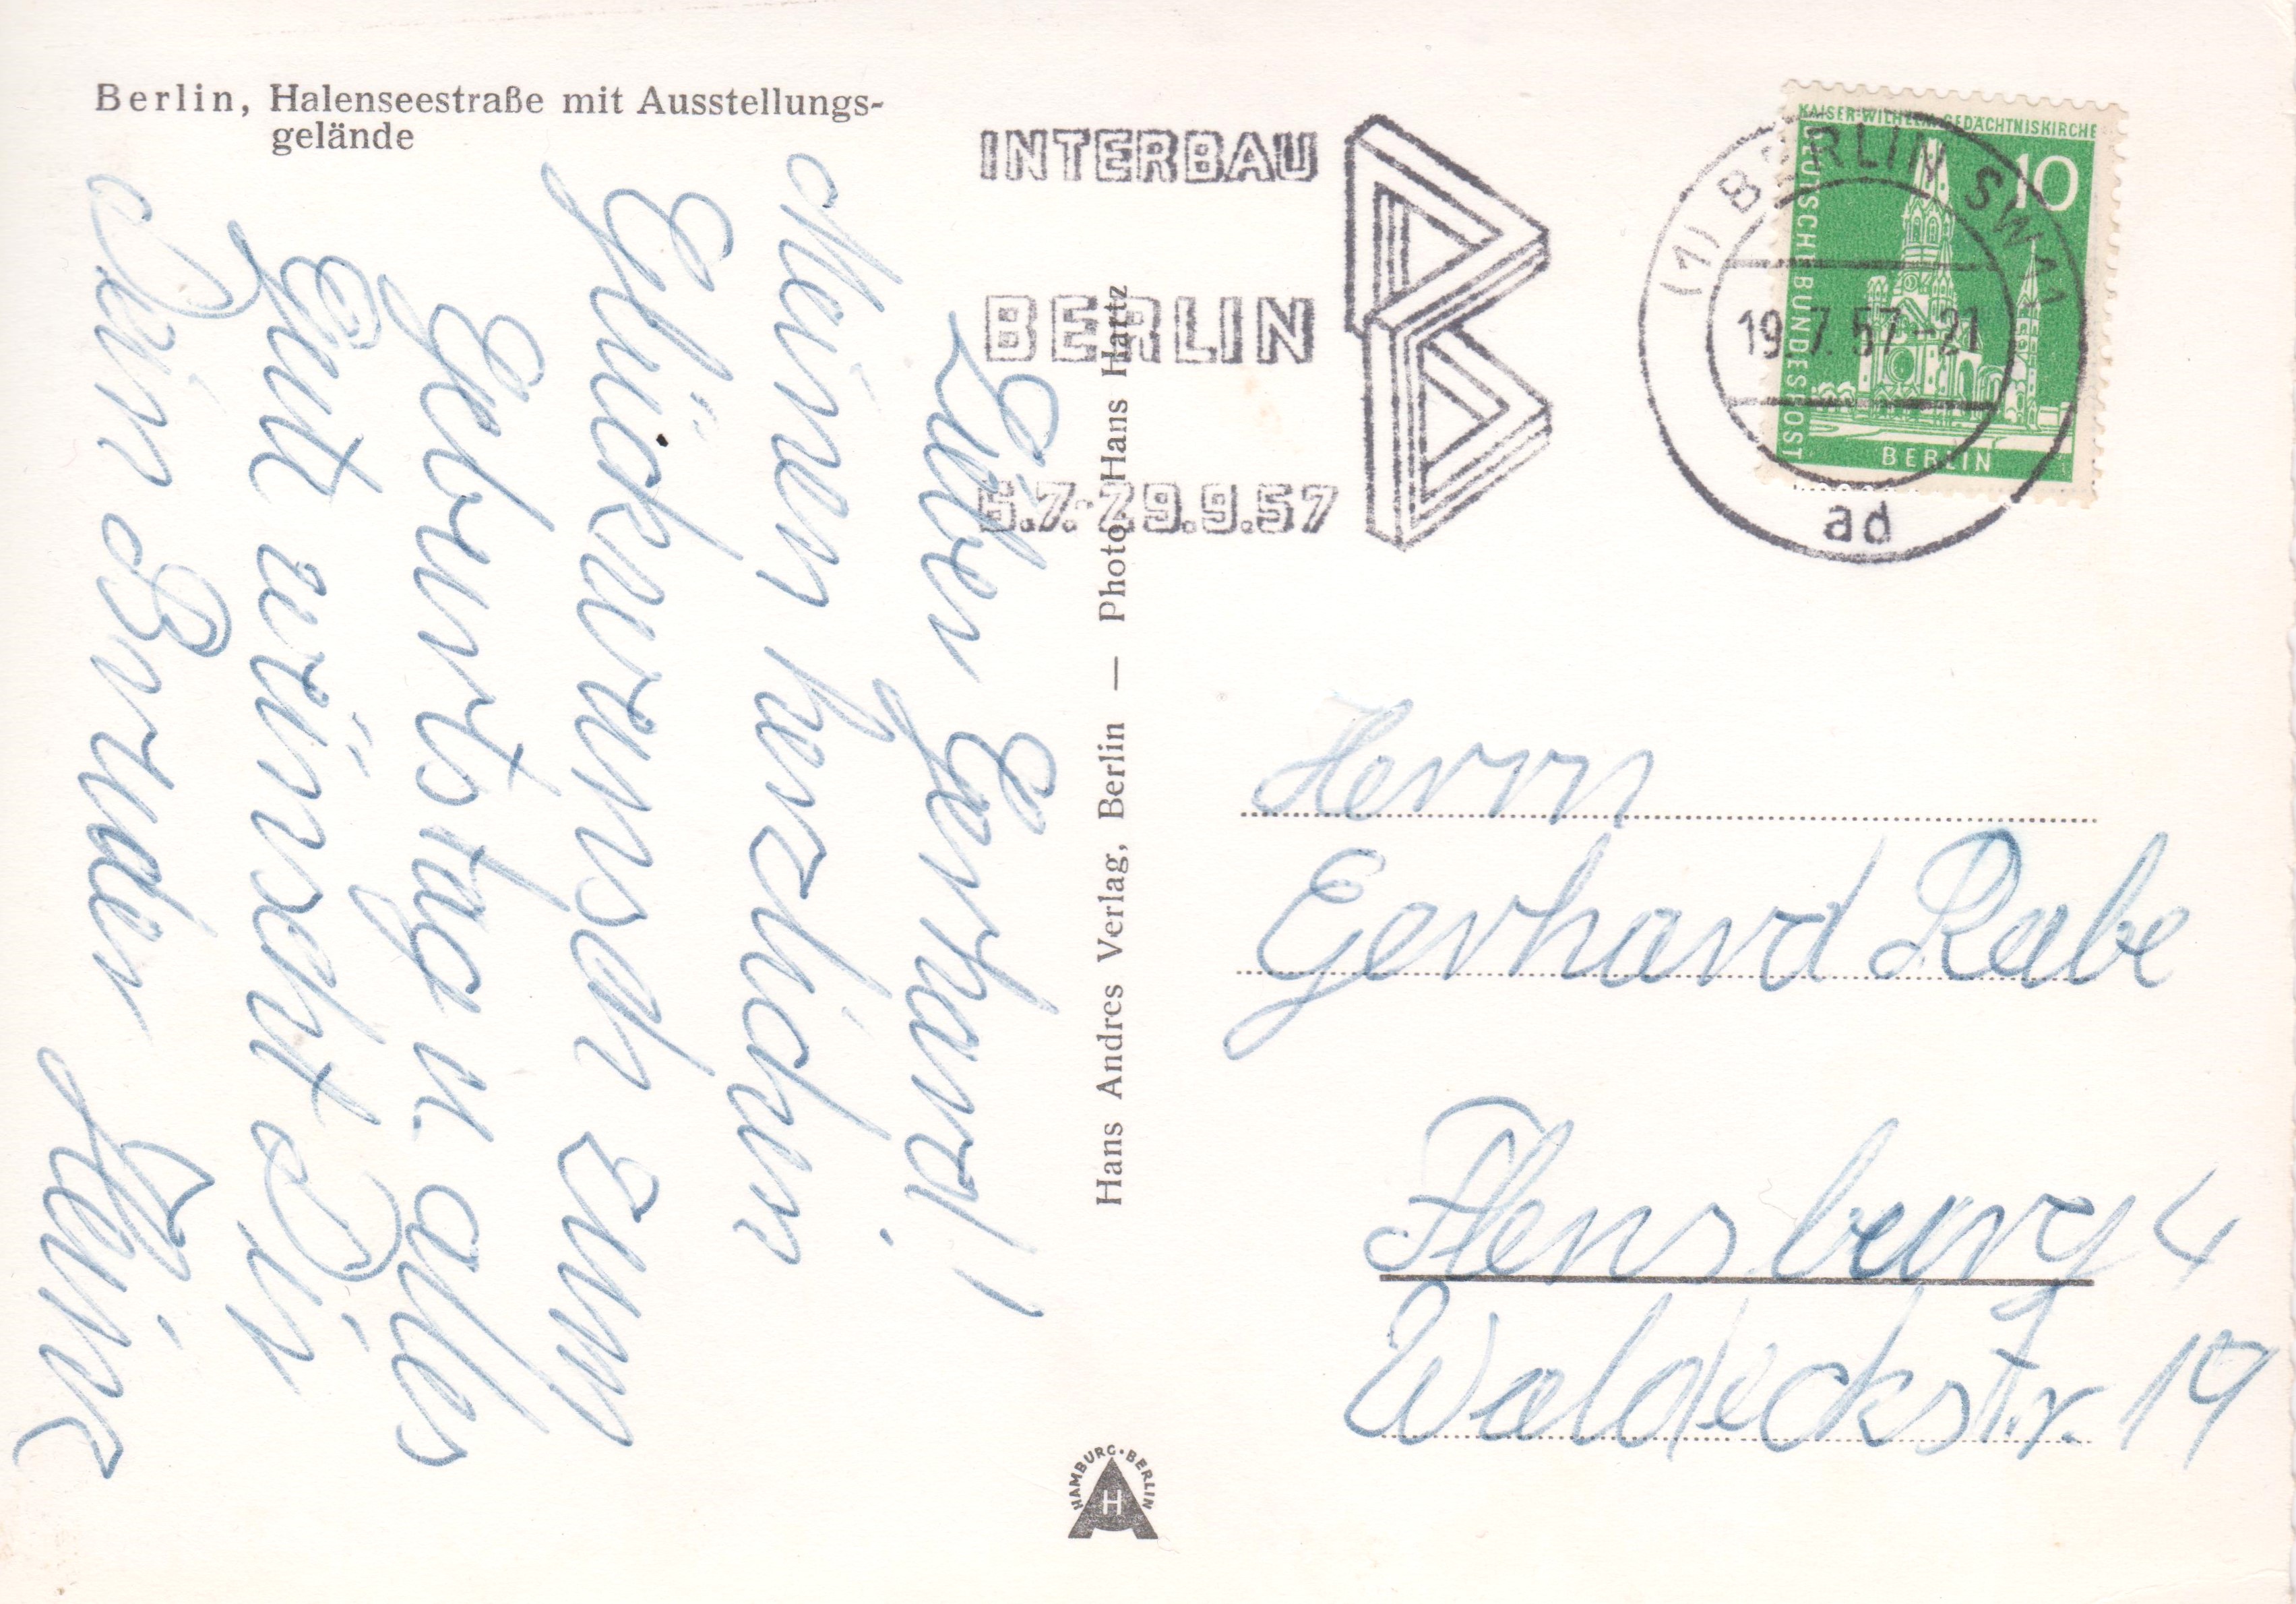 Berlin, Halenseestraße mit Ausstellungs-
gelände
Lieber Gerhard!
Meinen herzlichen
Glückwunsch zum
Geburtstag u. alles
Gute wünscht Dir
Dein Bruder Heinz
Hans Andres Verlag, Berlin — Photo Hans Hartz
HAMBURG·BERLIN
H
INTERBAU
BERLIN
6.7.-29.9.57
(1) BERLIN SW 11
19.7.57-21
ad
KAISER-WILHELM-GEDÄCHTNISKIRCHE
10
DEUTSCHE BUNDESPOST
BERLIN
Herrn
Gerhard Rabe
Flensburg
Waldeckstr. 19